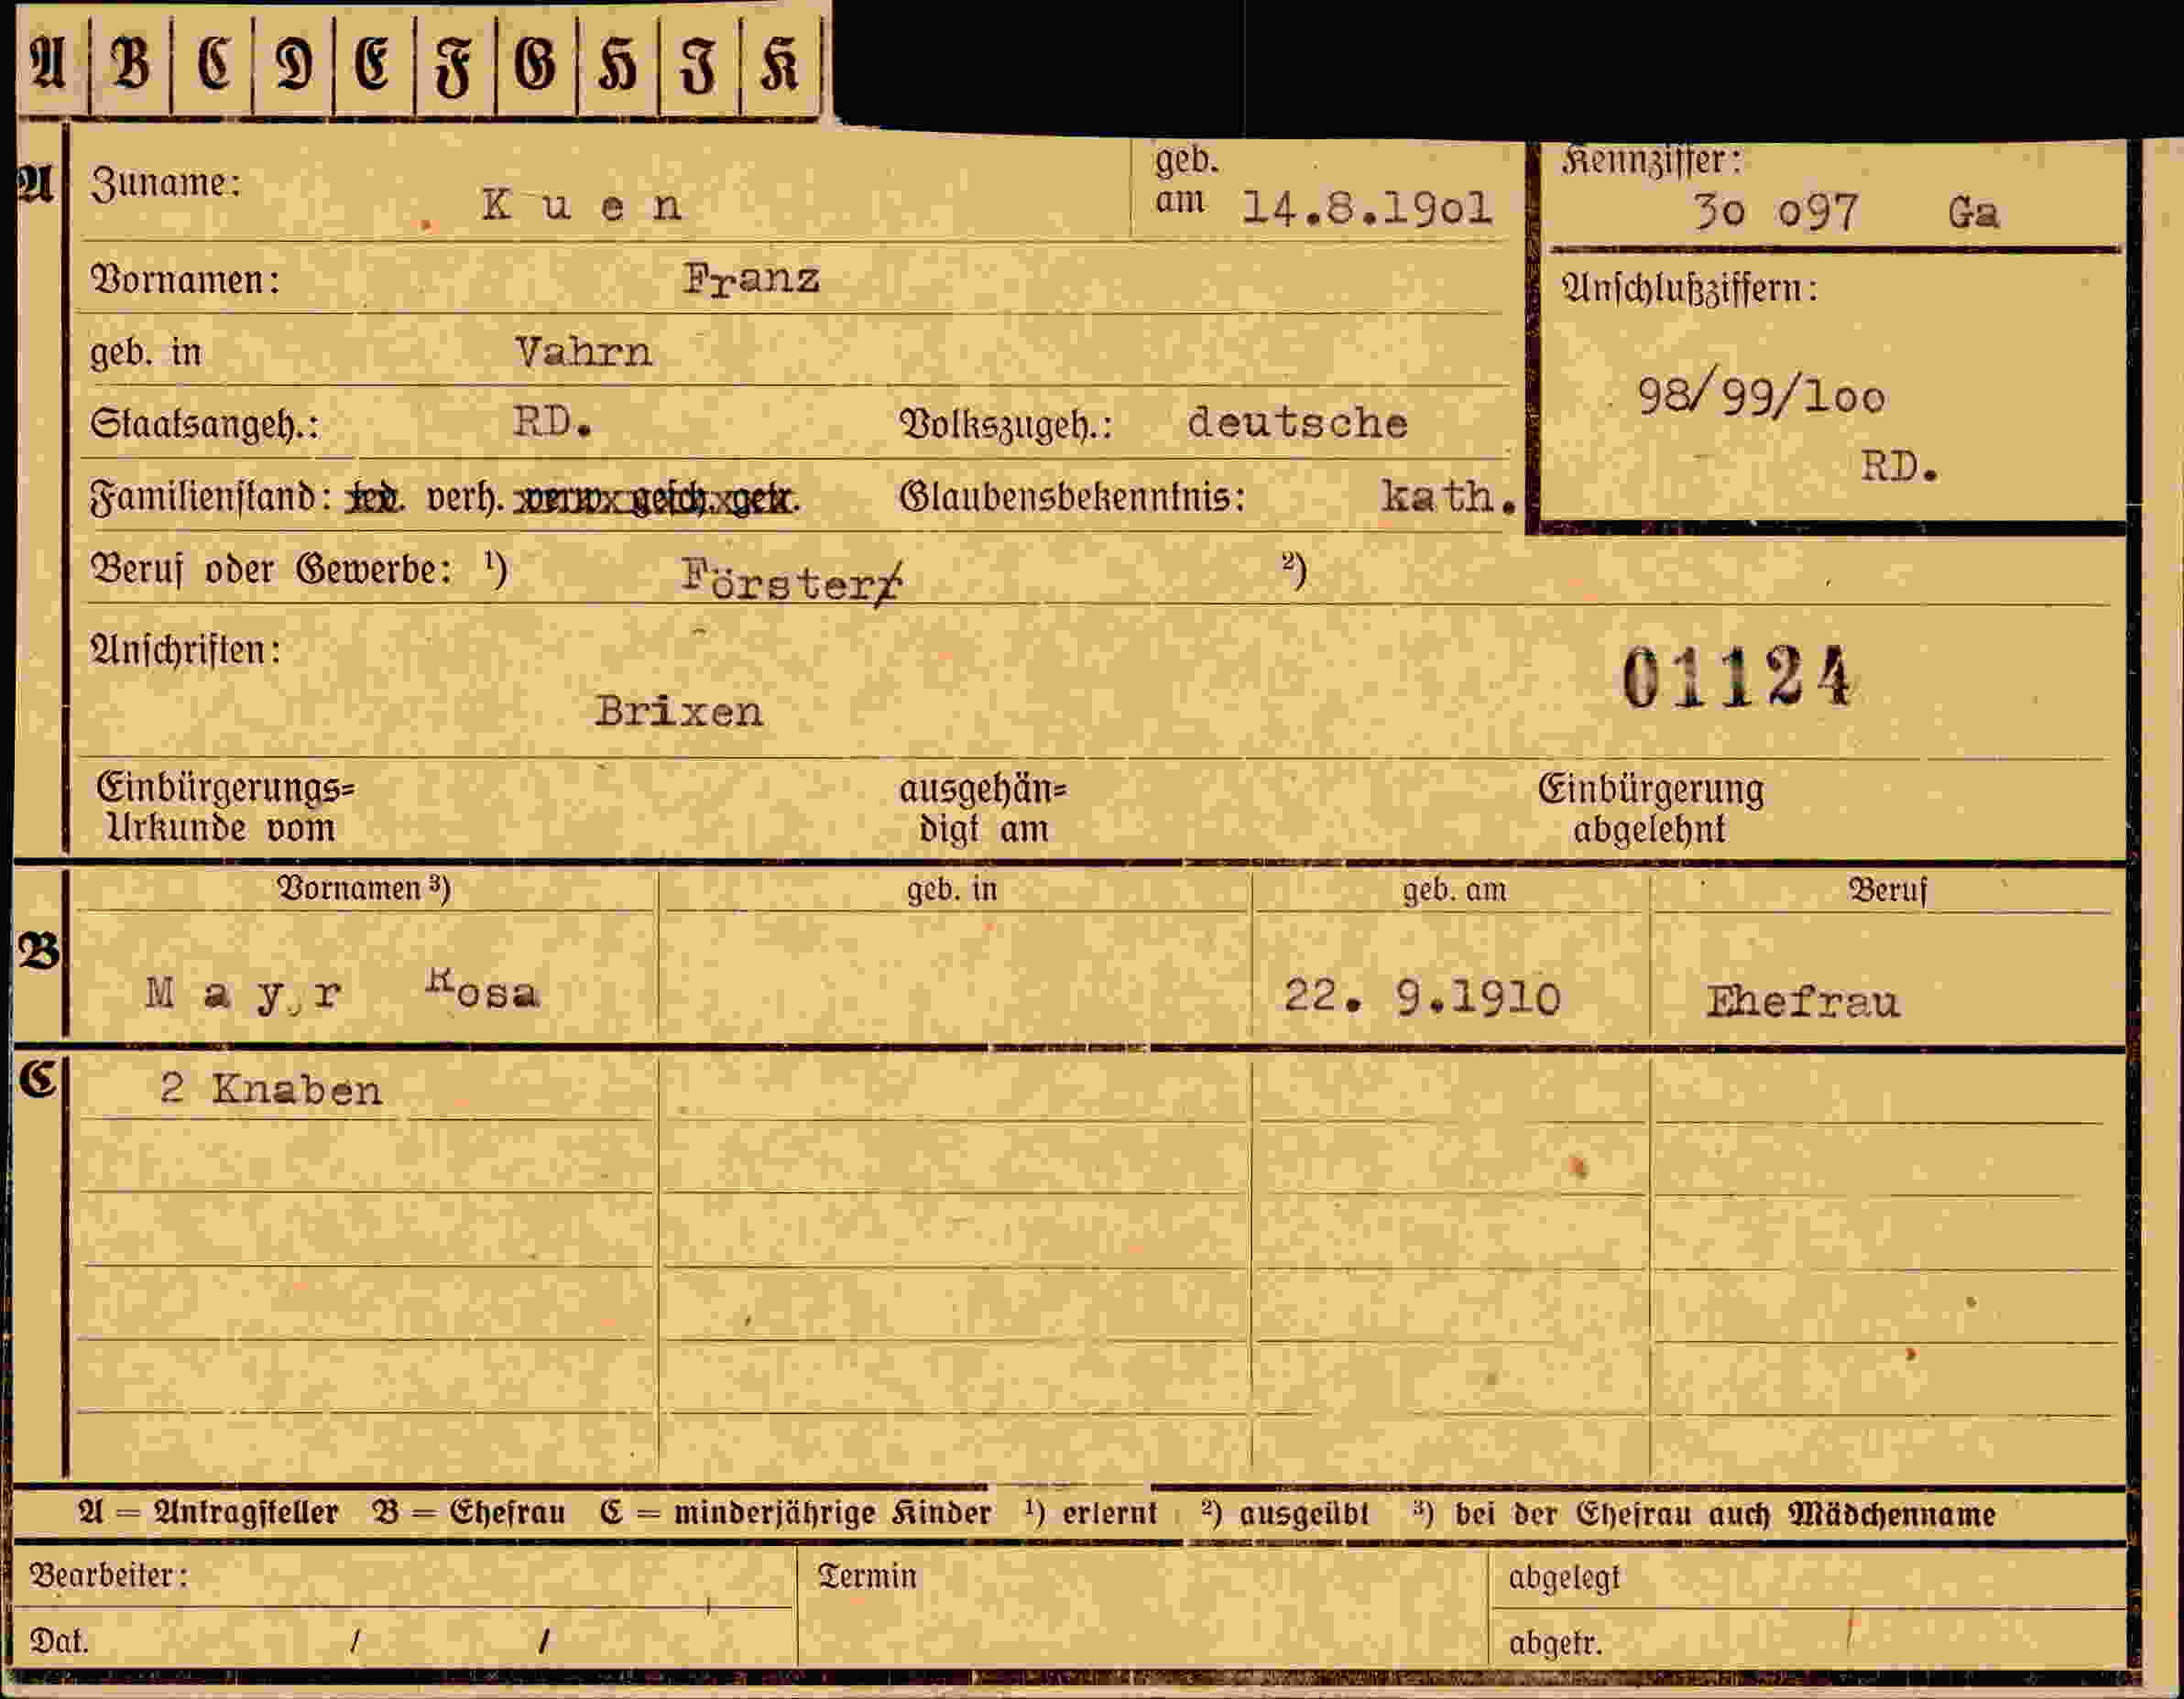 A B C D E F G H I K
A Zuname: Kuen geb. am 14.8.19o1 Kennziffer: 3o o97 Ga
Vornamen: Franz Anschlußziffern:
geb. in Vahrn 98/99/1oo
Staatsangeh.: RD. Volkszugeh.: deutsche RD.
Familienstand: led. verh. verw. gesch. getr. Glaubensbekenntnis: kath.
Beruf oder Gewerbe: ¹) Förster ²)
Anschriften: 01124
Brixen
Einbürgerungs= ausgehän= Einbürgerung
Urkunde vom digt am abgelehnt
Vornamen ³) geb. in geb. am Beruf
B Mayr Rosa 22. 9.1910 Ehefrau
C 2 Knaben
A = Antragsteller B = Ehefrau C = minderjährige Kinder ¹) erlernt ²) ausgeübt ³) bei der Ehefrau auch Mädchenname
Bearbeiter: Termin abgelegt
Dat. / / abgetr.